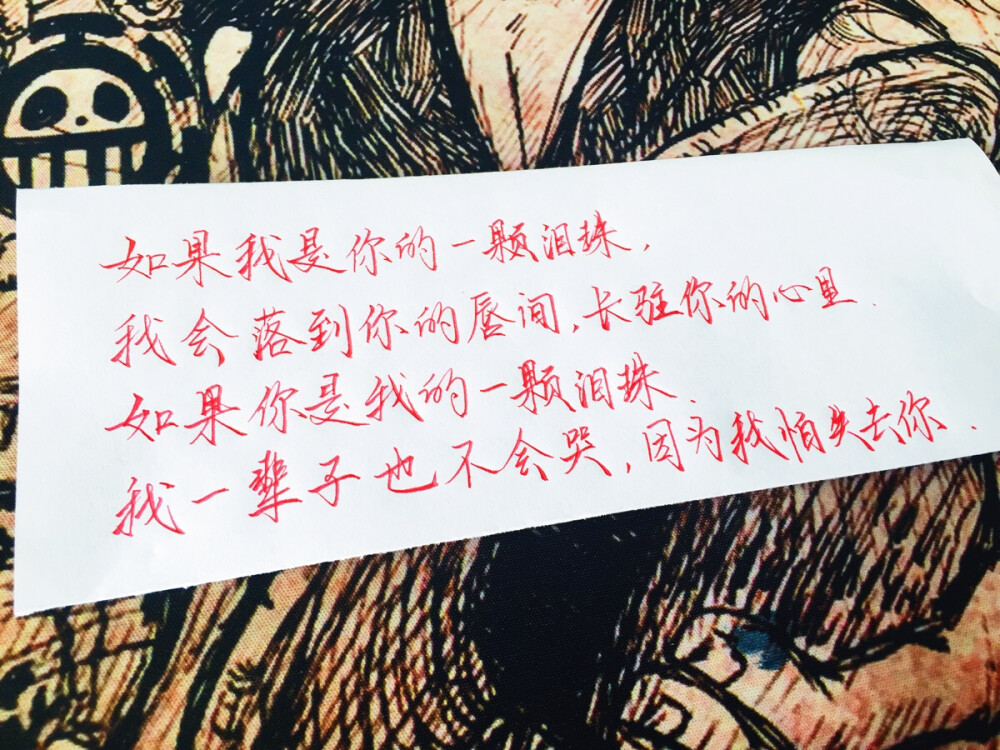 如果我是你的一颗泪珠,
我会落到你的唇间,长驻你的心里.
如果你是我的一颗泪珠.
我一辈子也不会哭,因为我怕失去你.